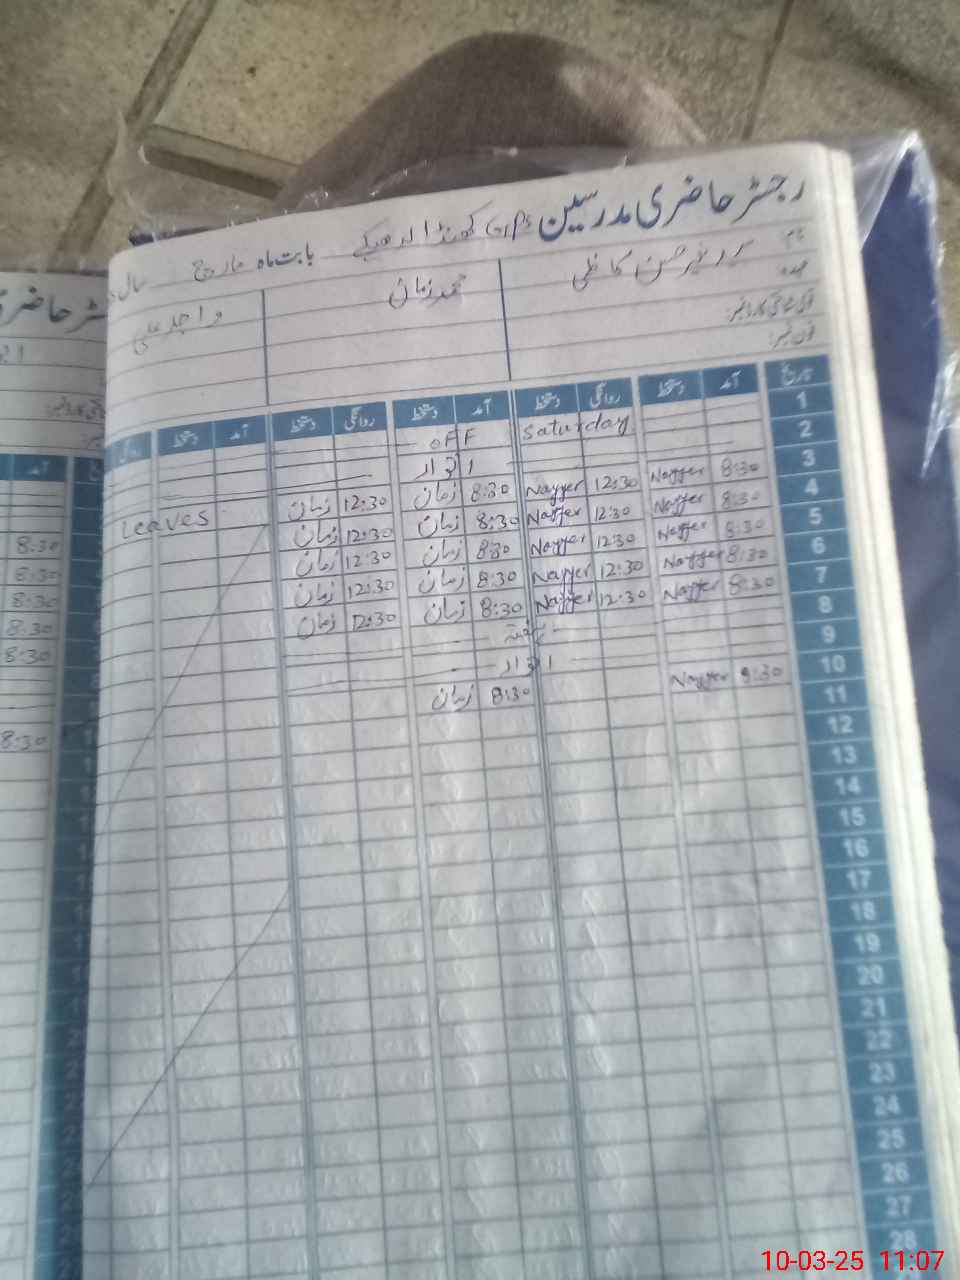 رجسٹر حاضری مدرسین GPS بابت ماہ مارچ سال
نام سید نیئر حسن کاظمی محمد زمان واجد علی
عہدہ
قومی شناختی کارڈ نمبر:
فون نمبر:
تاریخ آمد دستخط روانگی دستخط آمد دستخط روانگی دستخط آمد دستخط روانگی
1 Saturday OFF
2 اتوار
3 8:30 Nayyer 12:30 Nayyer 8:30 زمان 12:30 زمان Leaves
4 8:30 Nayyer 12:30 Nayyer 8:30 زمان 12:30 زمان
5 8:30 Nayyer 12:30 Nayyer 8:30 زمان 12:30 زمان
6 8:30 Nayyer 12:30 Nayyer 8:30 زمان 12:30 زمان
7 8:30 Nayyer 12:30 Nayyer 8:30 زمان 12:30 زمان
8 ہفتہ
9 اتوار
10 8:30 Nayyer 8:30 زمان
11
12
13
14
15
16
17
18
19
20
21
22
23
24
25
26
27
28
رجسٹر حاضری
آمد
8:30
8:30
8:30
8:30
8:30
8:30
10-03-25 11:07